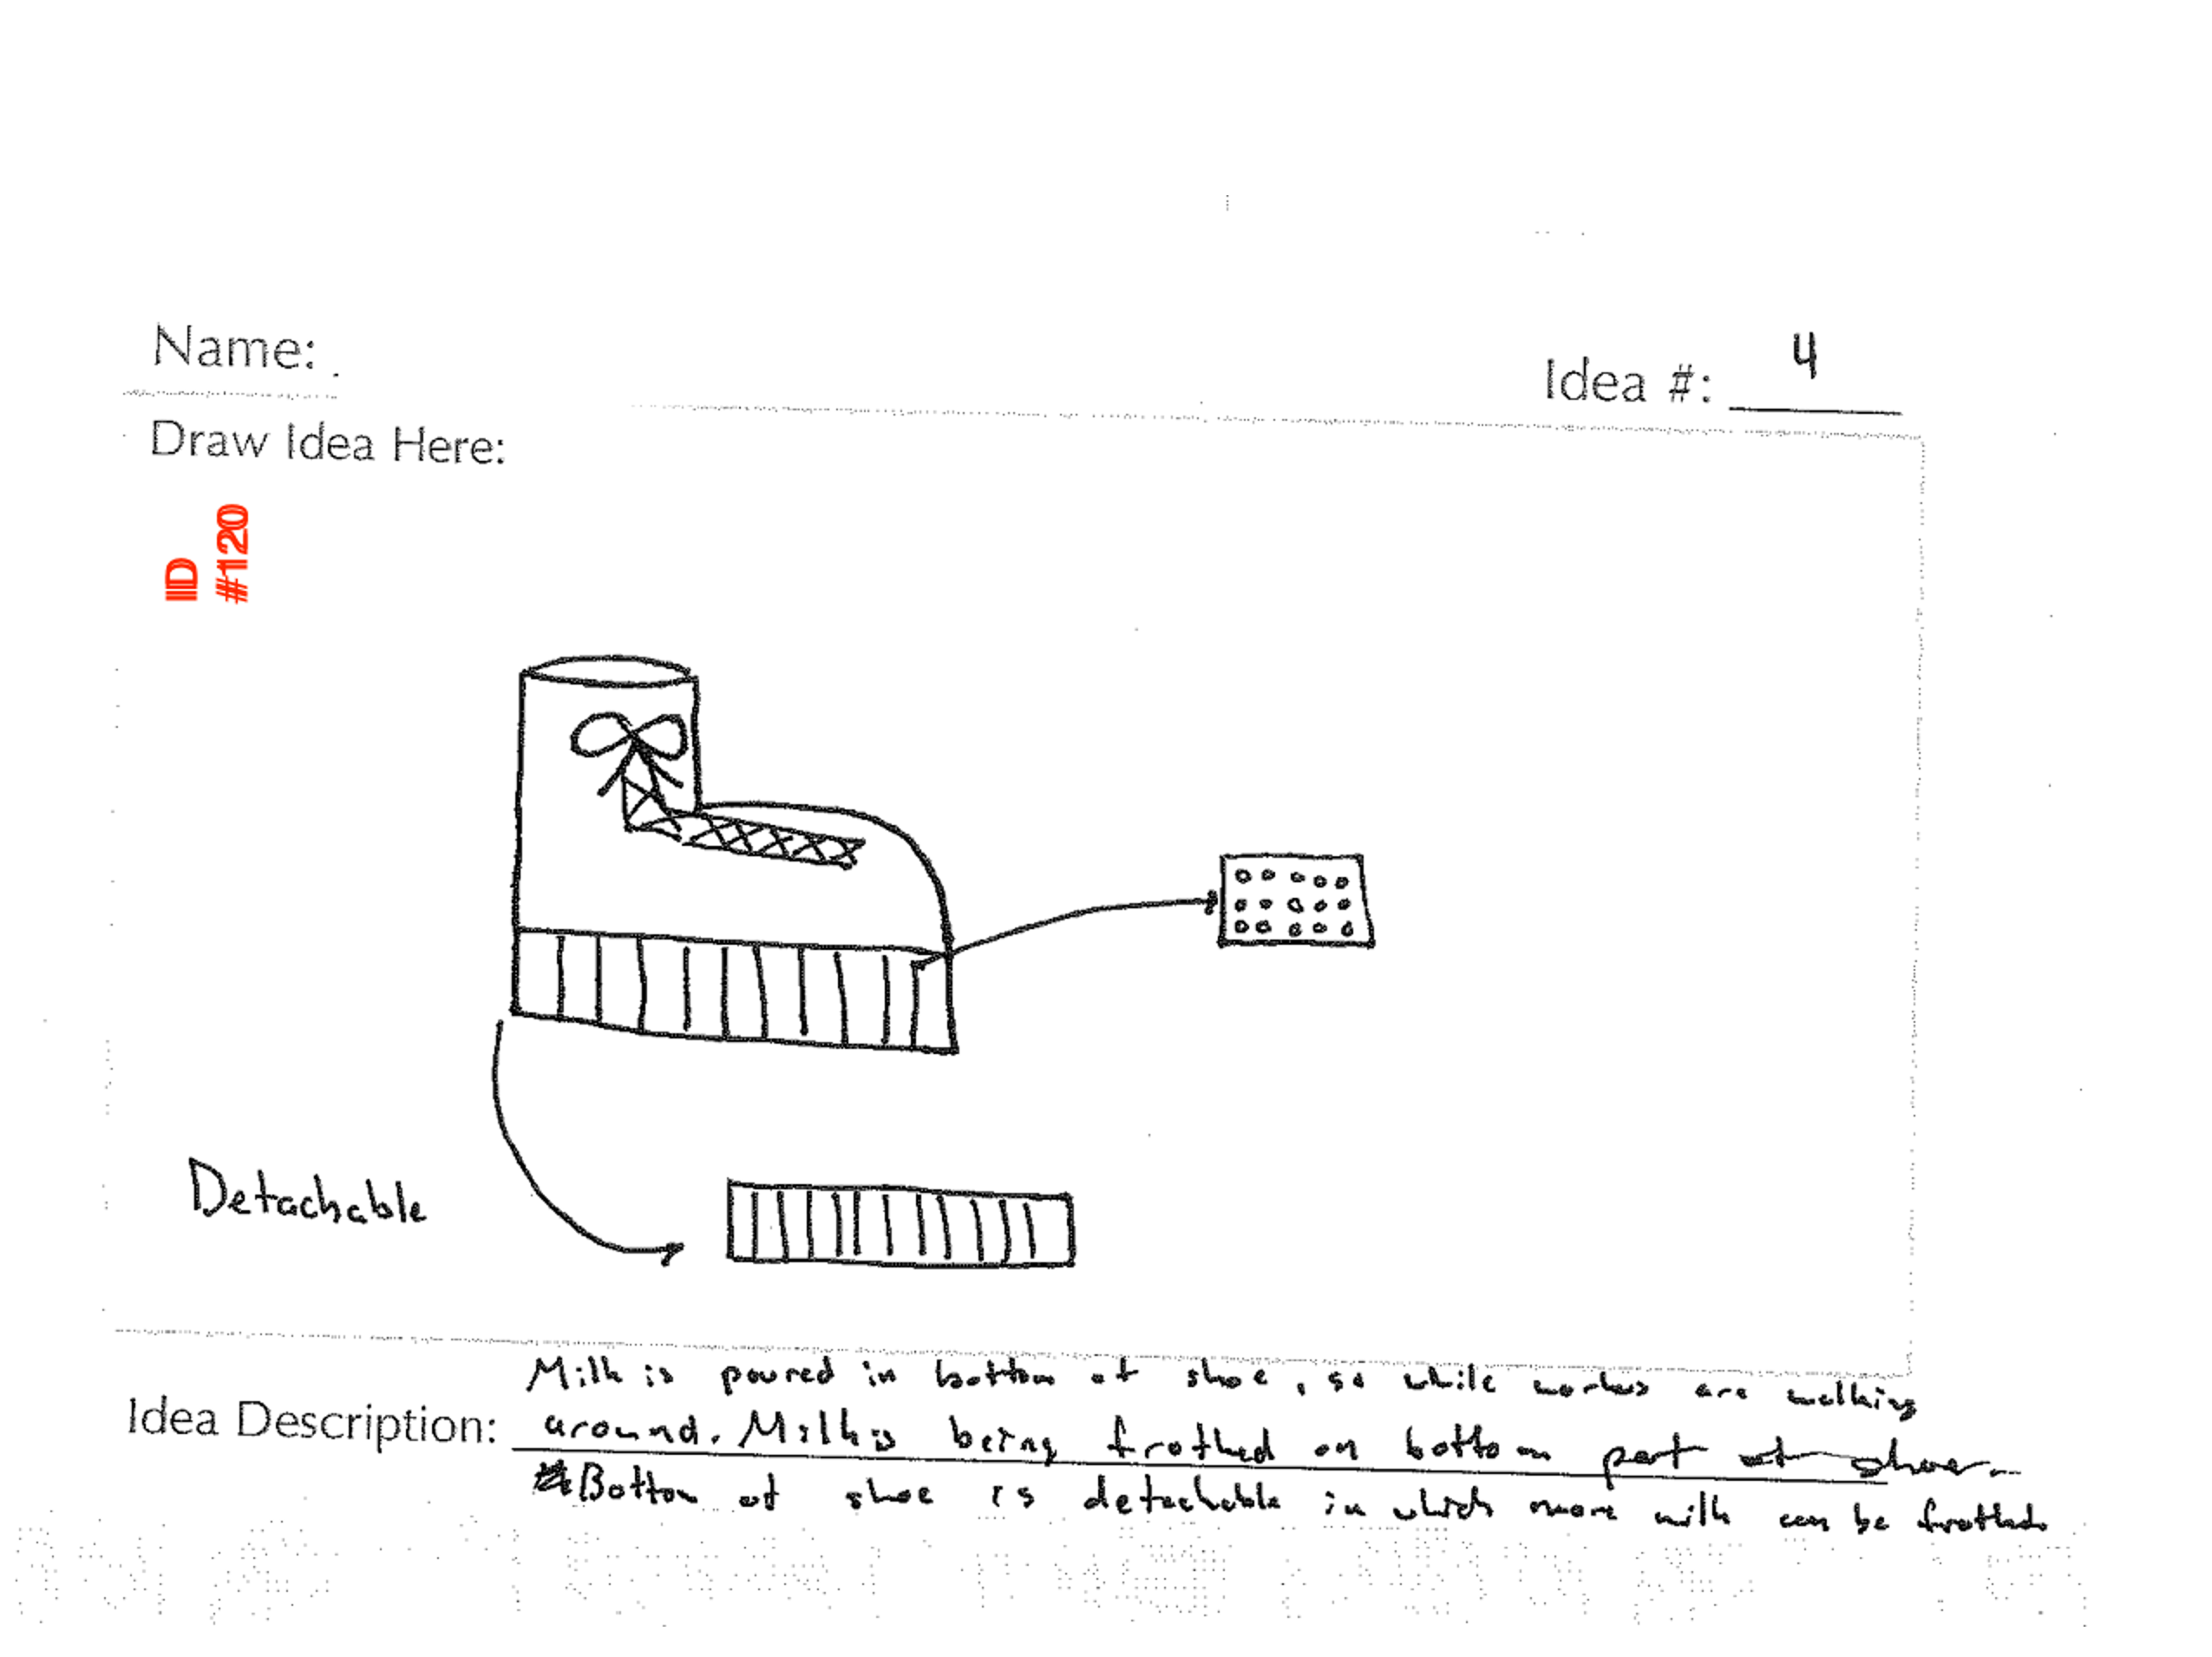 Name:
Idea #: 4
Draw Idea Here:
ID
#120
Detachable
Milk is poured in bottom of shoe, so while workers are walking
Idea Description: around. Milk is being frothed on bottom part of shoe.
Bottom of shoe is detachable in which more milk can be frothed